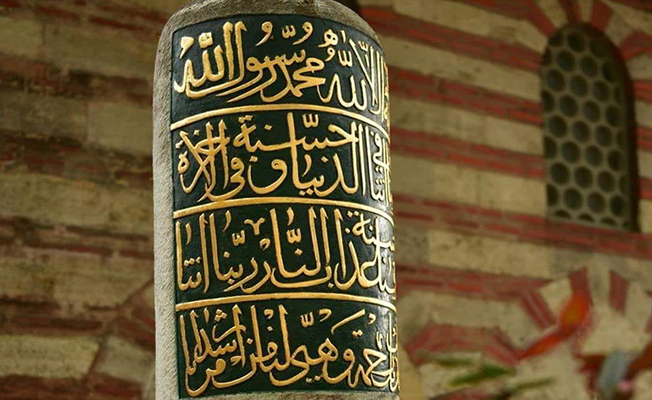 الا الله محمد رسول الله
في الدنيا حسنة و في الاخرة
حسنة وقنا عذاب النار ربنا اتنا
رحمة وهيئ لنا من امرنا رشدا